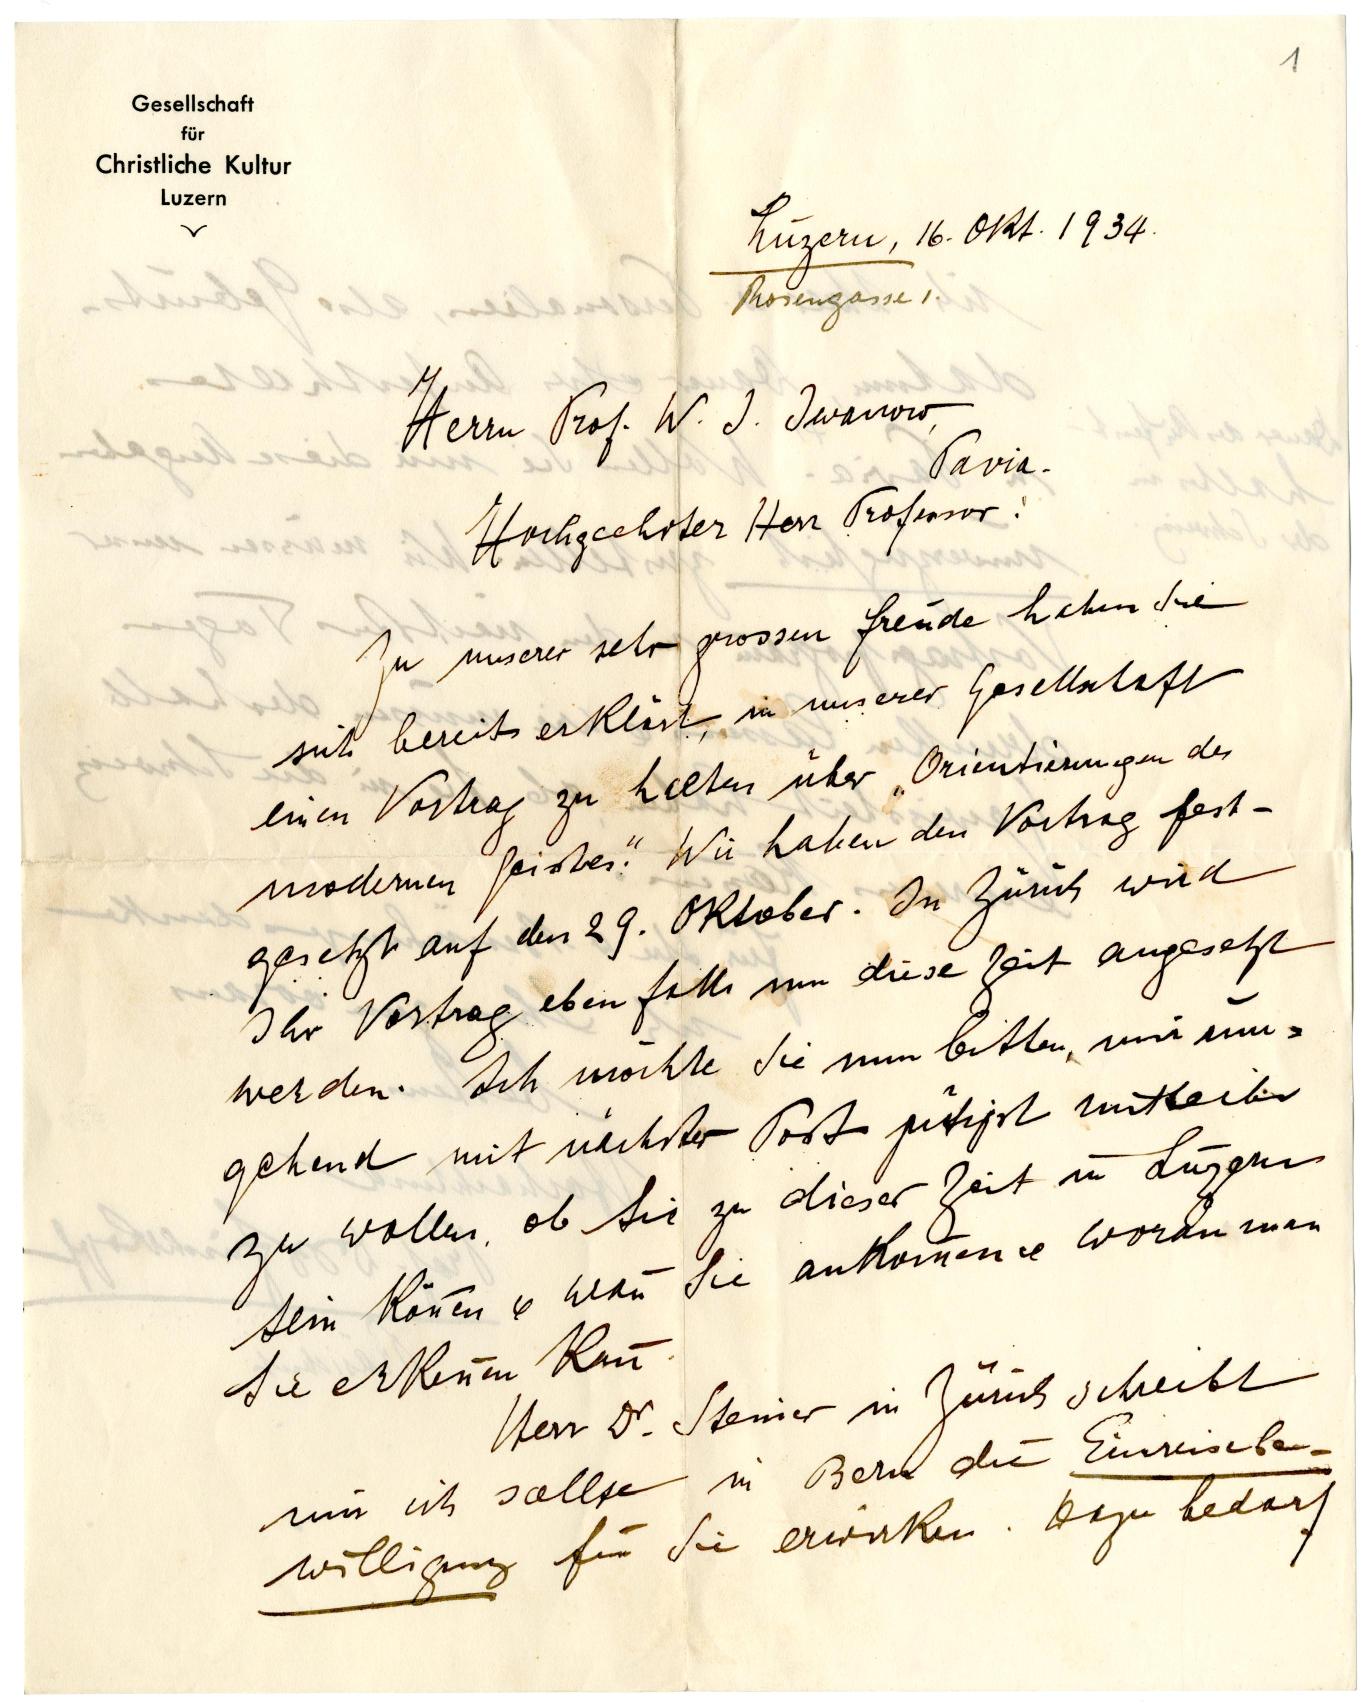 1
Gesellschaft
für
Christliche Kultur
Luzern
Luzern, 16. Okt. 1934.
Rosengasse 1.
Herrn Prof. W. J. Iwanow,
Pavia.
Hochgeehrter Herr Professor!
Zu unserer sehr grossen Freude haben Sie
sich bereits erklärt, in unserer Gesellschaft
einen Vortrag zu halten über „Orientierungen des
modernen Geistes." Wir haben den Vortrag fest-
gesetzt auf den 29. Oktober. In Zürich wird
Ihr Vortrag ebenfalls um diese Zeit angesetzt
werden. Ich möchte Sie nun bitten, mir um=
gehend mit nächster Post gütigst mitteilen
zu wollen, ob Sie zu dieser Zeit in Luzern
sein kön̄en & wan̄ Sie ankom̄en & woran man
Sie erken̄en kan̄.
Herr Dr. Steiner in Zürich schreibt
mir ich sollte in Bern die Einreisebe-
willigung für Sie erwirken. Dazu bedarf